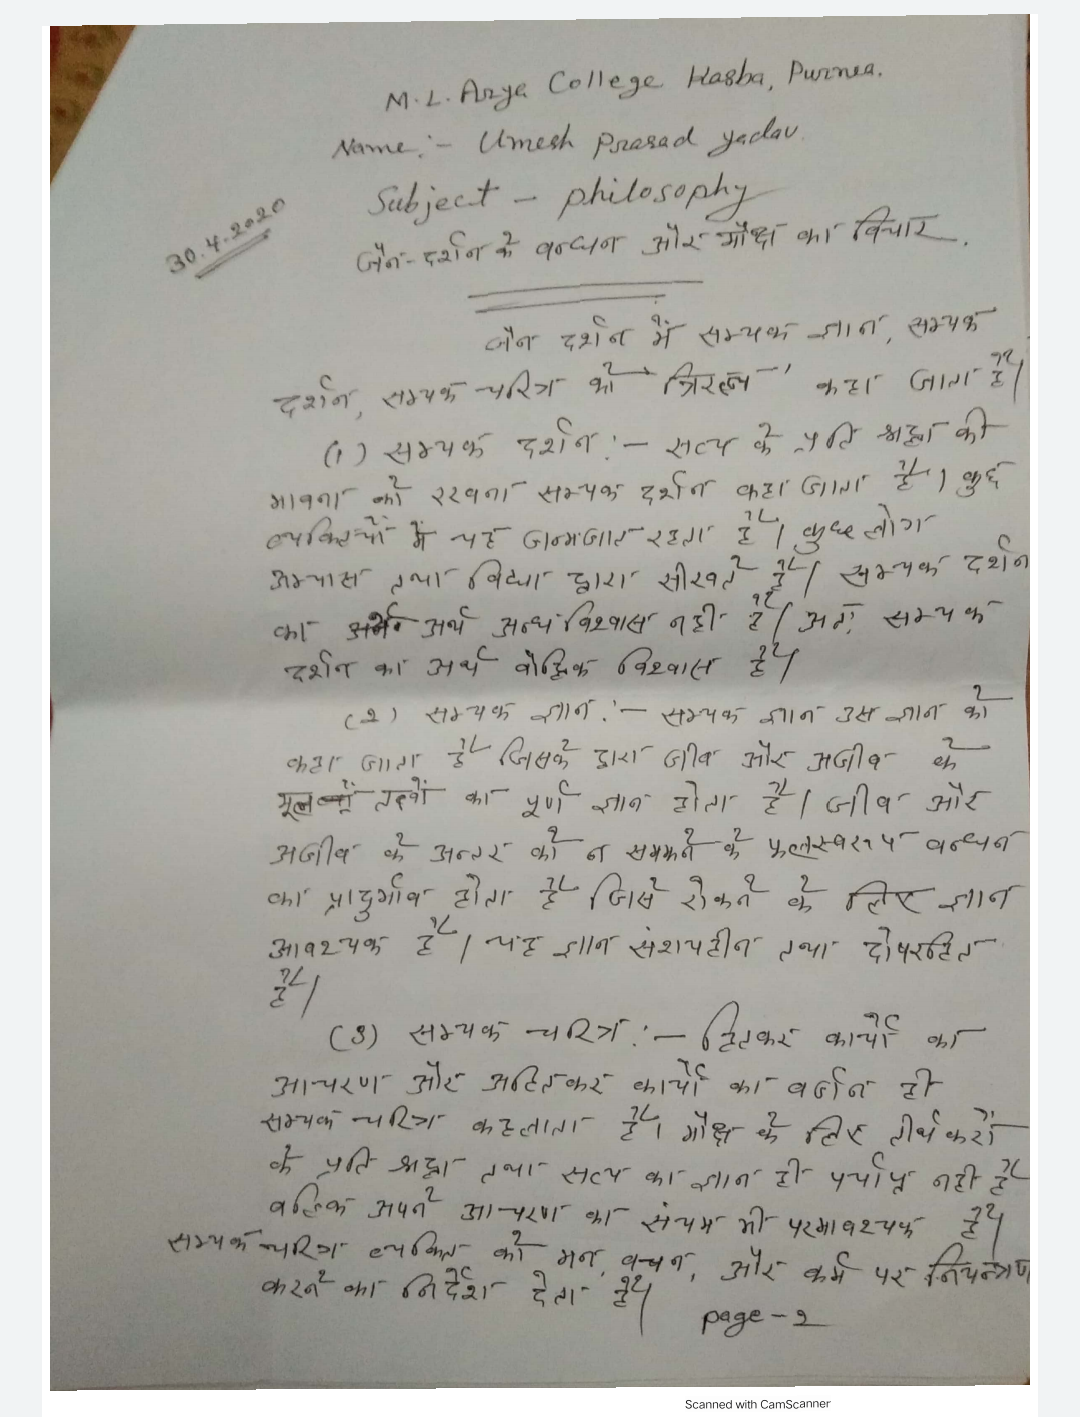 M.L. Arya College Kasba, Purnea.
Name:- Umesh Prasad yadav.
Subject - philosophy
30.4.2020
जैन-दर्शन के बन्धन और मोक्ष का विचार.
जैन दर्शन में सम्यक ज्ञान, सम्यक
दर्शन, सम्यक चरित्र को 'त्रिरत्न' कहा जाता है।
(1) सम्यक दर्शन:- सत्य के प्रति श्रद्धा की
भावना को रखना सम्यक दर्शन कहा जाता है। कुछ
व्यक्तियों में यह जन्मजात रहता है। कुछ लोग
अभ्यास तथा विद्या द्वारा सीखते है। सम्यक दर्शन
का अर्थ अन्धविश्वास नही है। अतः सम्यक
दर्शन का अर्थ बौद्धिक विश्वास है।
(2) सम्यक ज्ञान:- सम्यक ज्ञान उस ज्ञान को
कहा जाता है जिसके द्वारा जीव और अजीव के
मूल तत्वों का पूर्ण ज्ञान होता है। जीव और
अजीव के अन्तर को न समझने के फलस्वरूप बन्धन
का प्रादुर्भाव होता है जिसे रोकने के लिए ज्ञान
आवश्यक है। यह ज्ञान संशयहीन तथा दोषरहित
है।
(3) सम्यक चरित्र:- हितकर कार्यो का
आचरण और अहितकर कार्यो का वर्जन ही
सम्यक चरित्र कहलाता है। मोक्ष के लिए तीर्थकरों
के प्रति श्रद्धा तथा सत्य का ज्ञान ही पर्याप्त नही है
बल्कि अपने आचरण का संयम भी परमावश्यक है।
सम्यक चरित्र व्यक्ति को मन, वचन, और कर्म पर नियन्त्रण
करने का निर्देश देता है।
page-2
Scanned with CamScanner